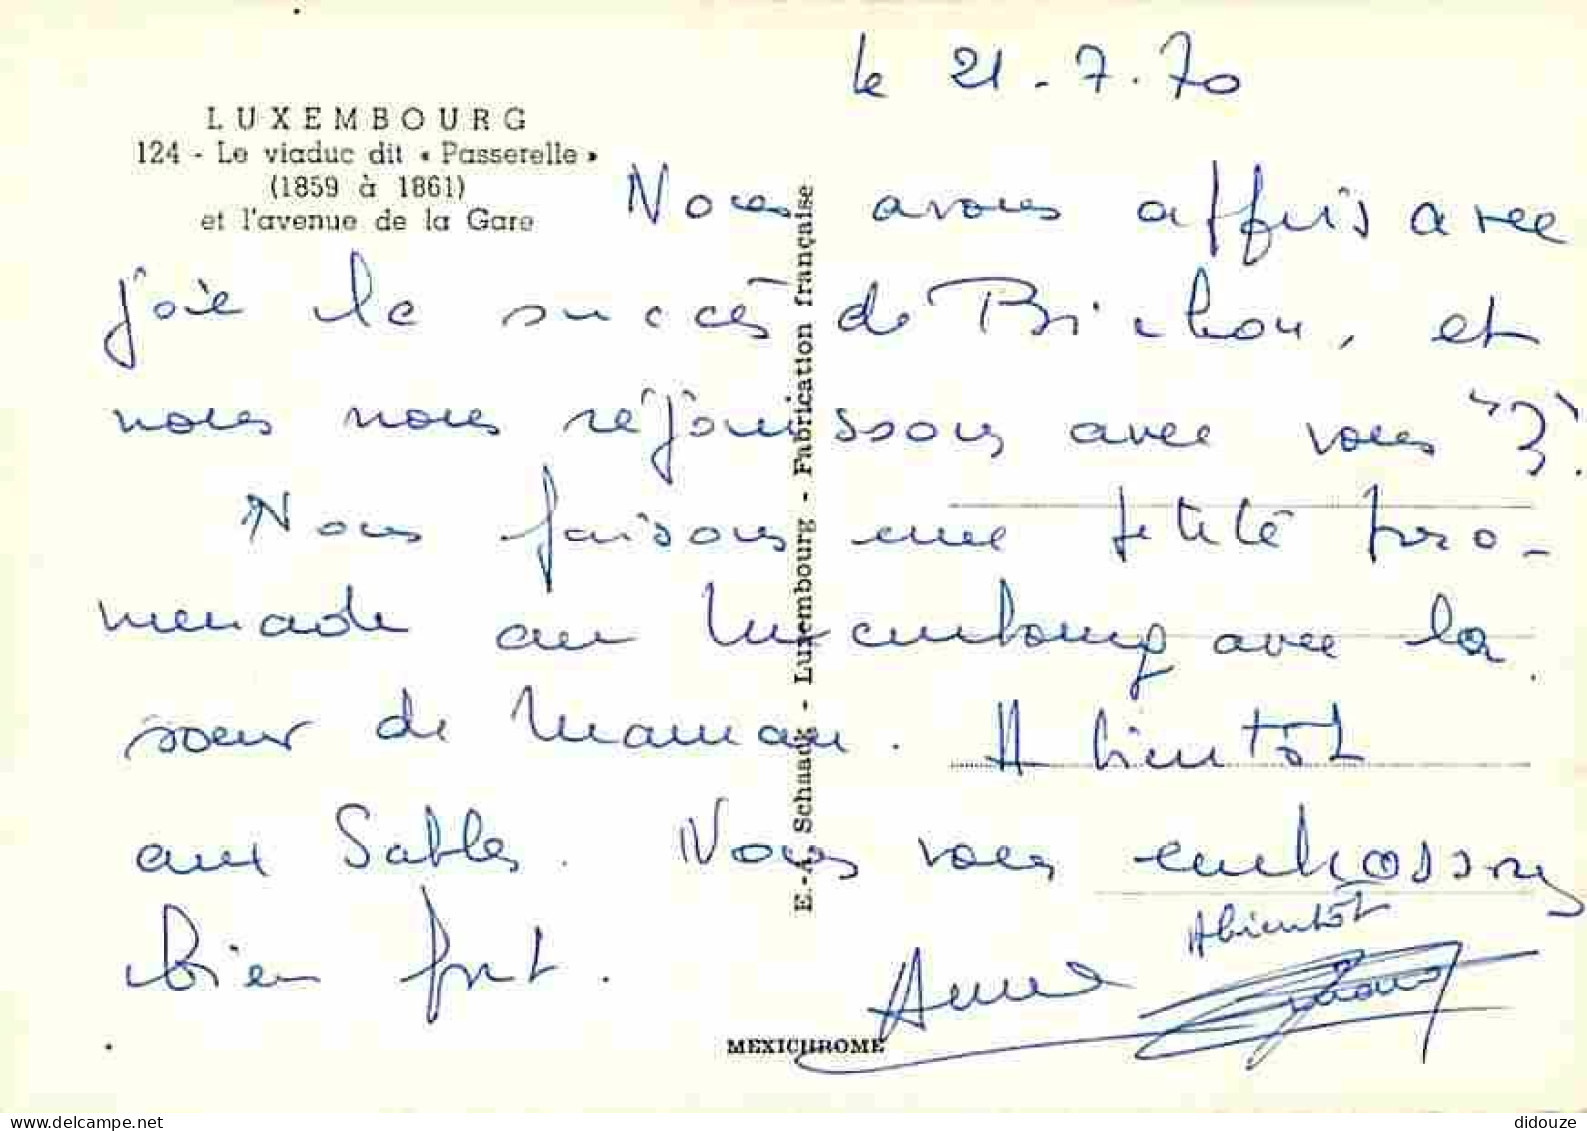 le 21-7.70
LUXEMBOURG
124 - Le viaduc dit « Passerelle »
(1859 à 1861)
et l'avenue de la Gare
Nous avons appris avec
joie le succès de Bichou, et
nous nous réjouissons avec vous "3".
Nous faisons une petite pro-
menade au Luxembourg avec la
soeur de Maman. A bientôt
aux Sables. Nous vous embrassons
bien fort.
A bientôt
Anne
E.-A. Schaack - Luxembourg - Fabrication française
MEXICHROME
didouze